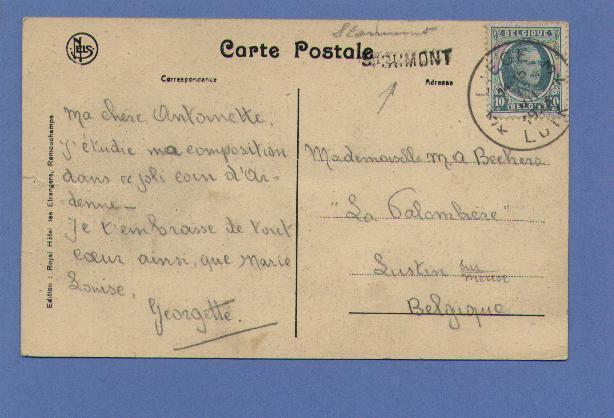 NELS
Carte Postale
Correspondance
Adresse
BELGIQUE
10
BELGIË
Edition : Royal Hôtel des Etrangers, Remouchamps
Ma chère Antoinette,
J'étudie ma composition
dans ce joli coin d'Ar-
denne —
Je t'embrasse de tout
cœur ainsi, que Marie
Louise,
Georgette.
Mademoiselle M. A Bechers
"La Palombière"
Lustin sur
Meuse
Belgique